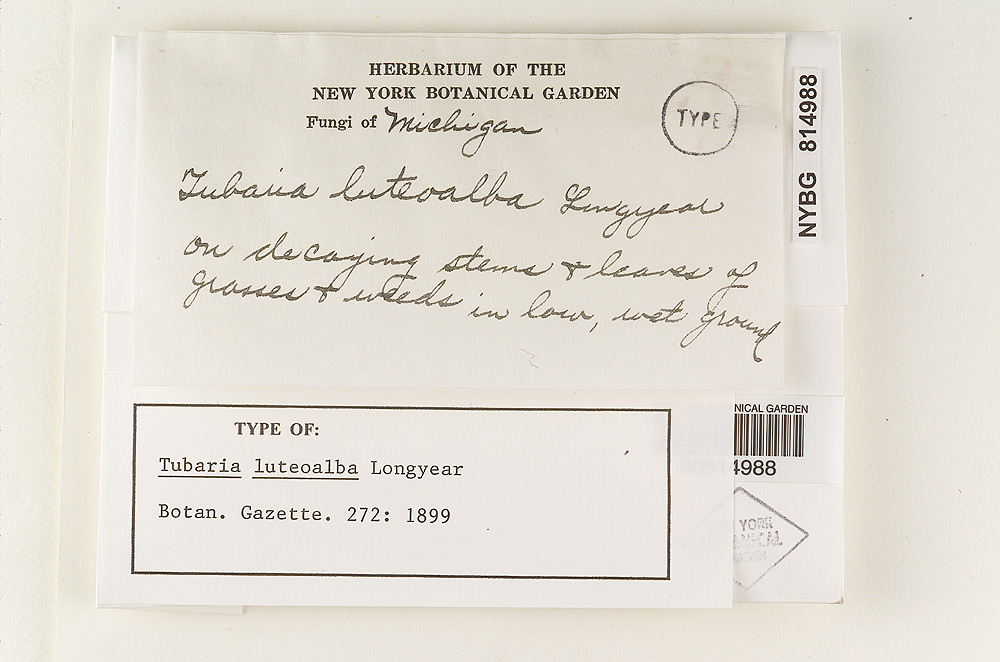 HERBARIUM OF THE
NEW YORK BOTANICAL GARDEN
Fungi of Michigan
TYPE
Tubaria luteoalba Longyear
on decaying stems & leaves of
grasses & weeds in low, wet ground
NYBG 814988
TYPE OF:
Tubaria luteoalba Longyear
Botan. Gazette. 272: 1899
NICAL GARDEN
4988
YORK